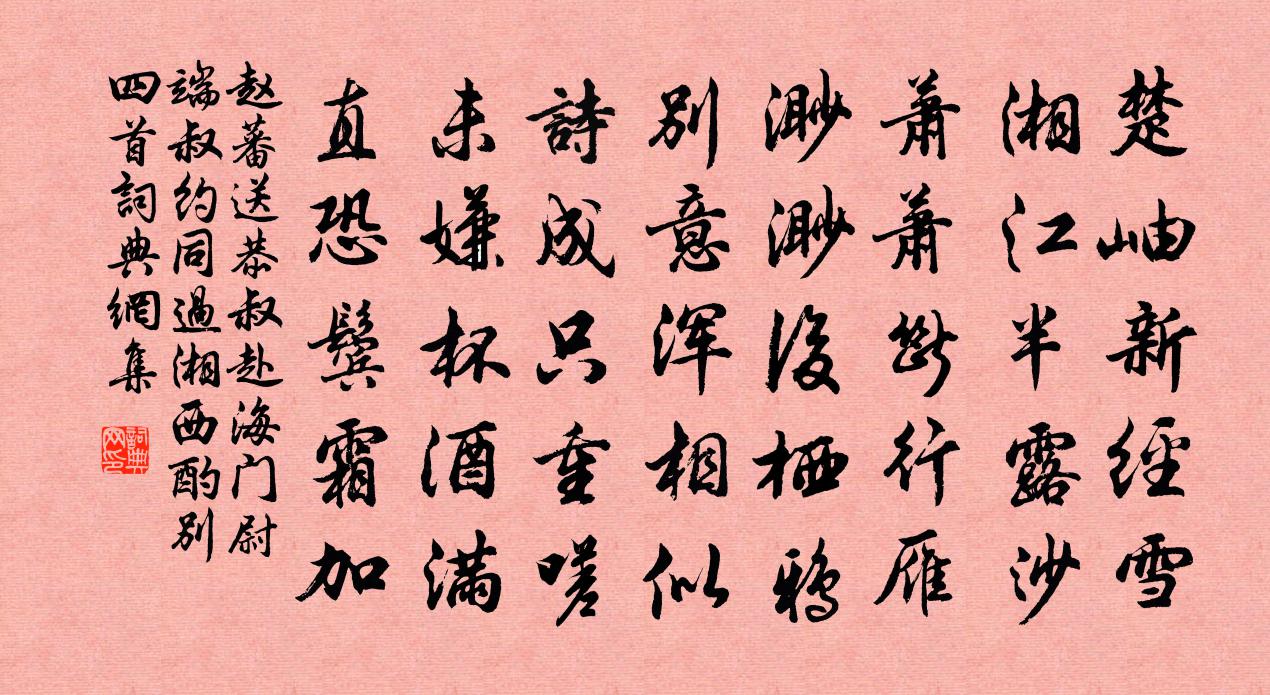 楚岫新經雪
湘江半露沙
萧萧断行雁
渺渺後栖鸦
别意浑相似
詩成只重嗟
未嫌杯酒满
直恐鬓霜加
赵蕃送恭叔赴海门尉
端叔约同過湘西酌别
四首詞典網集
詞典
网印